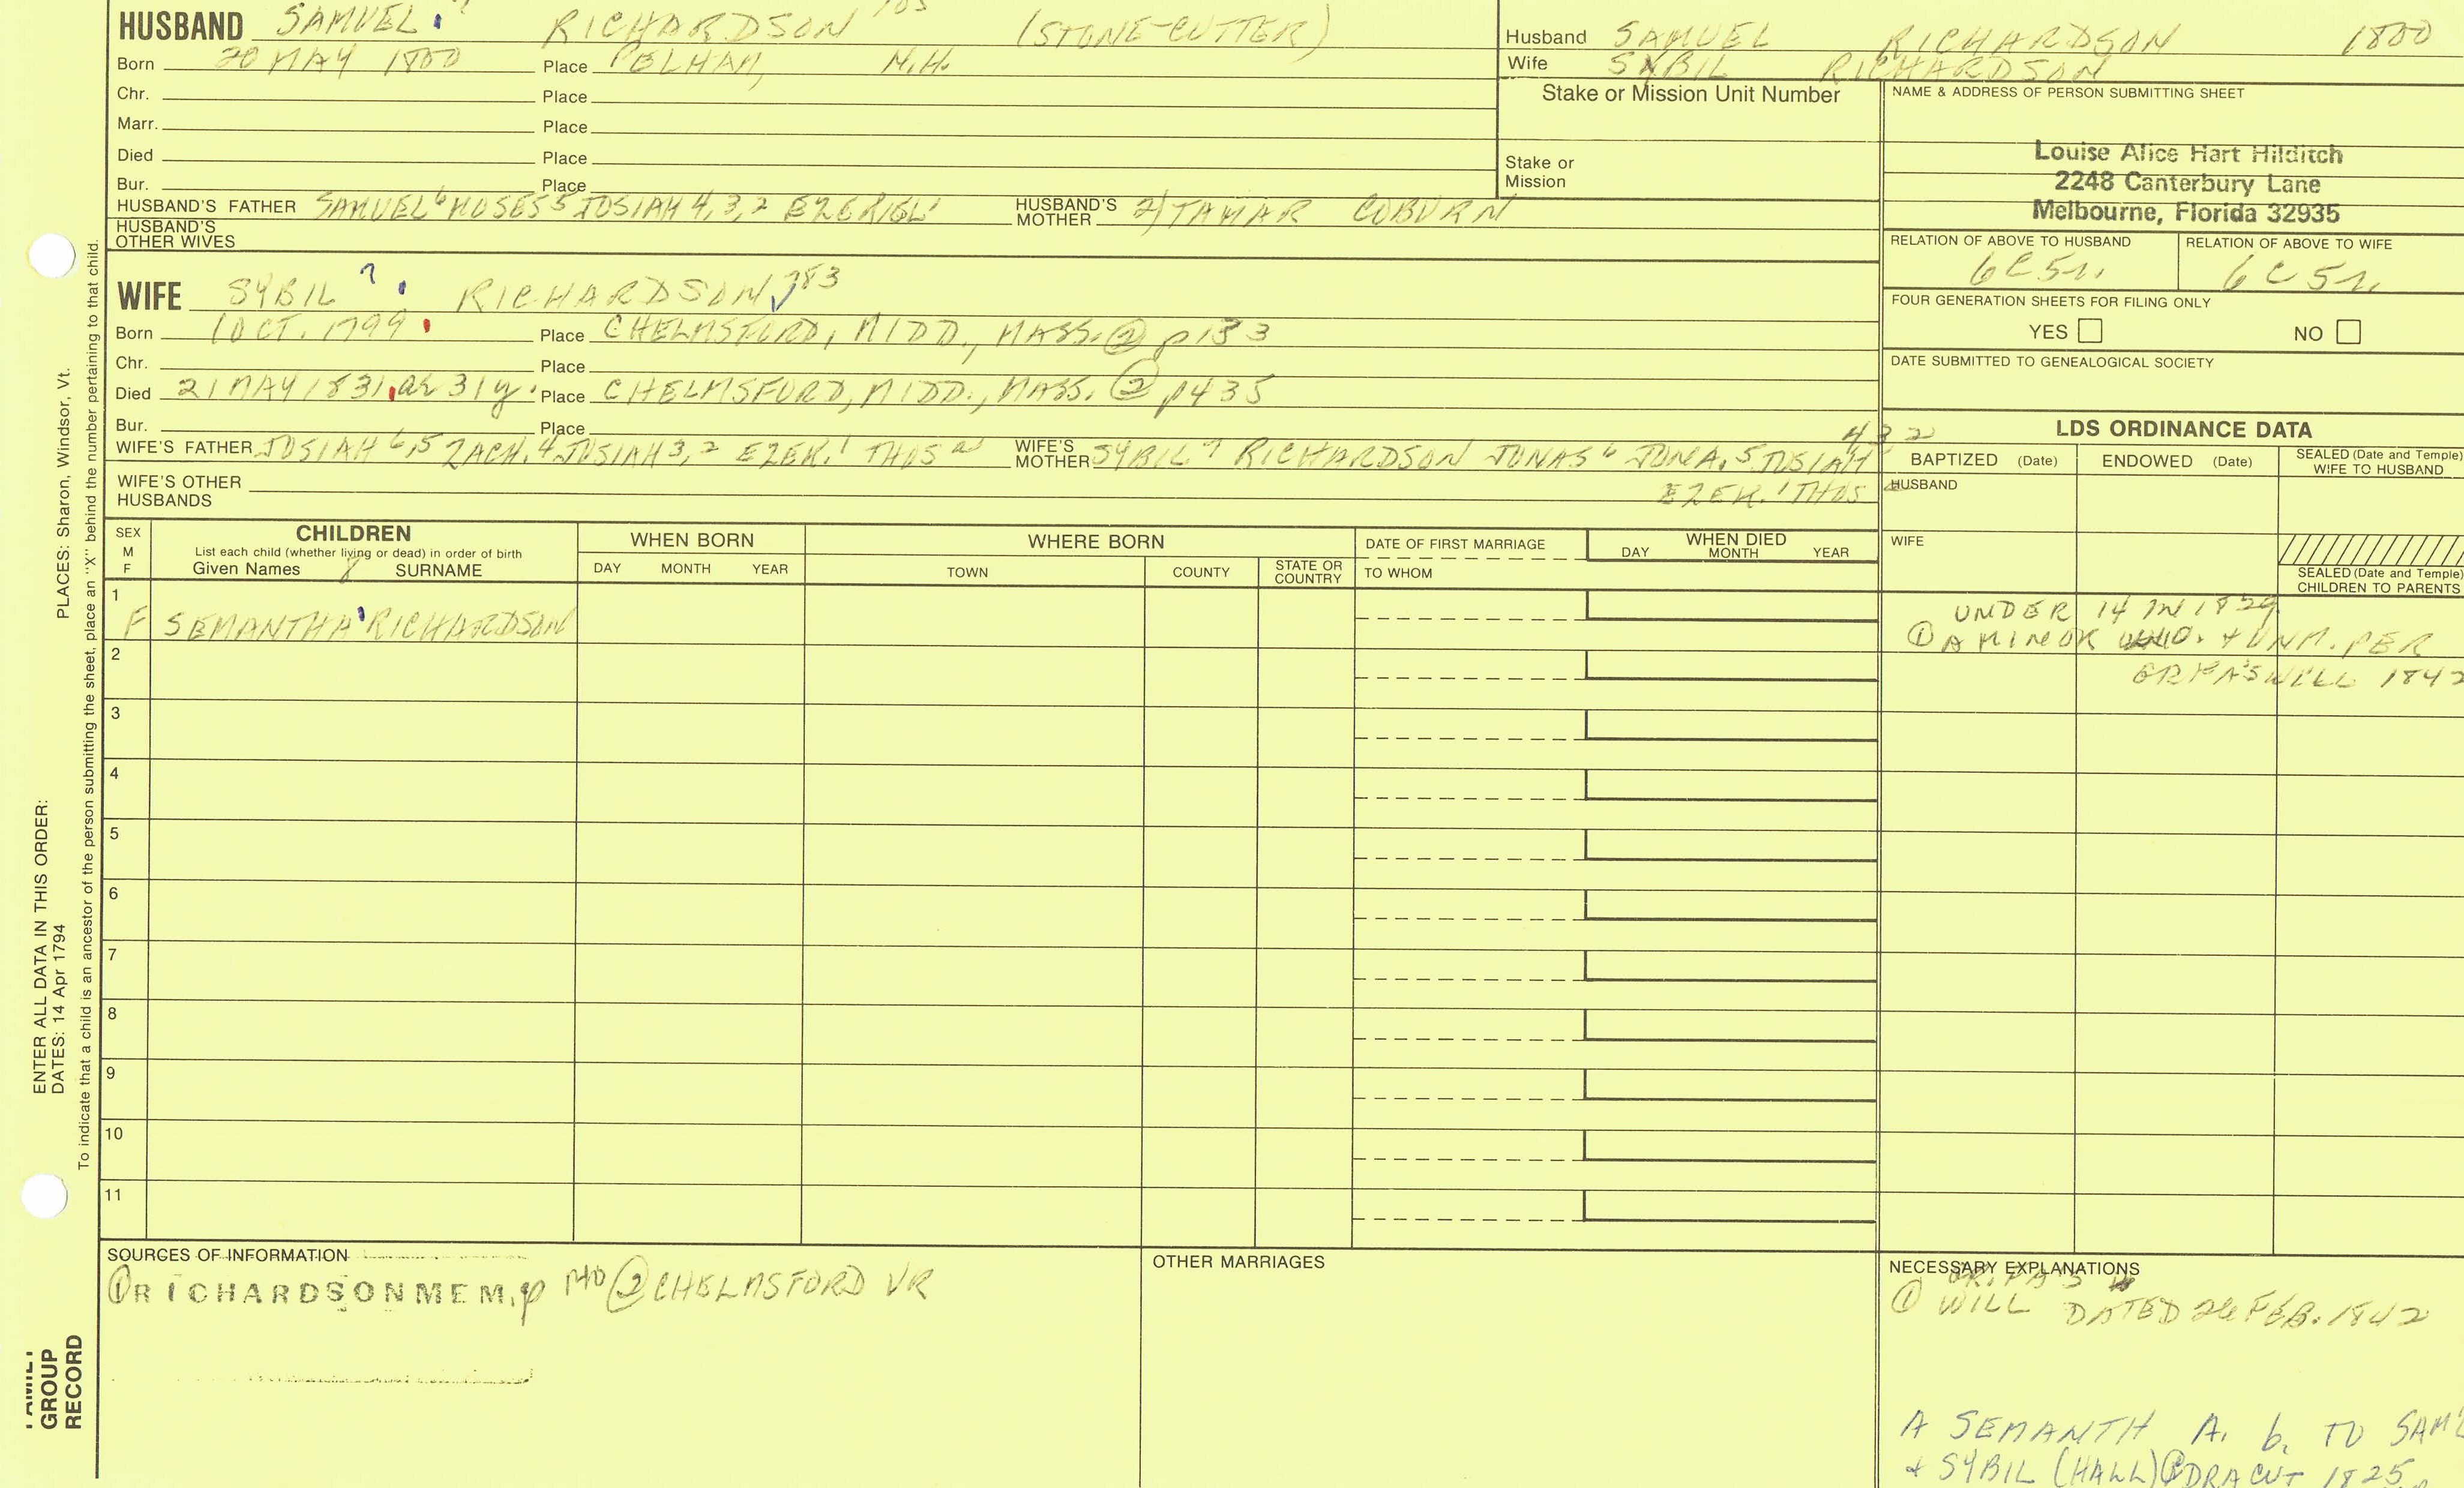 HUSBAND SAMUEL 7 RICHARDSON 703 (STONE-CUTTER)
Born 20 MAY 1800 Place PELHAM, N.H.
Chr. Place
Marr. Place
Died Place
Bur. Place
HUSBAND'S FATHER SAMUEL 6 MOSES 5 JOSIAH 4,3,2 EZEKIEL 1 HUSBAND'S MOTHER 2) TAMAR COBURN
HUSBAND'S OTHER WIVES
Husband SAMUEL RICHARDSON 1800
Wife SYBIL RICHARDSON
Stake or Mission Unit Number
Stake or Mission
NAME & ADDRESS OF PERSON SUBMITTING SHEET
Louise Alice Hart Hilditch
2248 Canterbury Lane
Melbourne, Florida 32935
RELATION OF ABOVE TO HUSBAND RELATION OF ABOVE TO WIFE
6C5r. 6C5r.
FOUR GENERATION SHEETS FOR FILING ONLY
YES NO
DATE SUBMITTED TO GENEALOGICAL SOCIETY
WIFE SYBIL 7 RICHARDSON 783
Born 1 OCT. 1799 Place CHELMSFORD, MIDD., MASS. ② p133
Chr. Place
Died 21 MAY 1831, ae 31y. Place CHELMSFORD, MIDD., MASS. ② p435
Bur. Place
WIFE'S FATHER JOSIAH 6,5 ZACH. 4 JOSIAH 3,2 EZEK. 1 THOS a WIFE'S MOTHER SYBIL 7 RICHARDSON JONAS 6 JONA. 5 JOSIAH 4 3 2
EZEK. 1 THOS a
WIFE'S OTHER HUSBANDS
LDS ORDINANCE DATA
BAPTIZED (Date) ENDOWED (Date) SEALED (Date and Temple) WIFE TO HUSBAND
HUSBAND
WIFE
SEALED (Date and Temple) CHILDREN TO PARENTS
SEX M F CHILDREN WHEN BORN WHERE BORN DATE OF FIRST MARRIAGE WHEN DIED
List each child (whether living or dead) in order of birth
Given Names 8 SURNAME DAY MONTH YEAR TOWN COUNTY STATE OR COUNTRY TO WHOM DAY MONTH YEAR
1 F SEMANTHA RICHARDSON
UNDER 14 IN 1829
① A MINOR + UNM. PER
GRPA'S WILL 1842
2
3
4
5
6
7
8
9
10
11
SOURCES OF INFORMATION
① RICHARDSON MEM. p 740 ② CHELMSFORD VR
OTHER MARRIAGES
NECESSARY EXPLANATIONS
GR.PA'S
① WILL DATED 26 FEB. 1842
A SEMANTH A. b. TO SAM'L
+ SYBIL (HALL) @ DRACUT 1825
ENTER ALL DATA IN THIS ORDER:
DATES: 14 Apr 1794 PLACES: Sharon, Windsor, Vt.
To indicate that a child is an ancestor of the person submitting the sheet, place an "X" behind the number pertaining to that child.
FAMILY
GROUP
RECORD